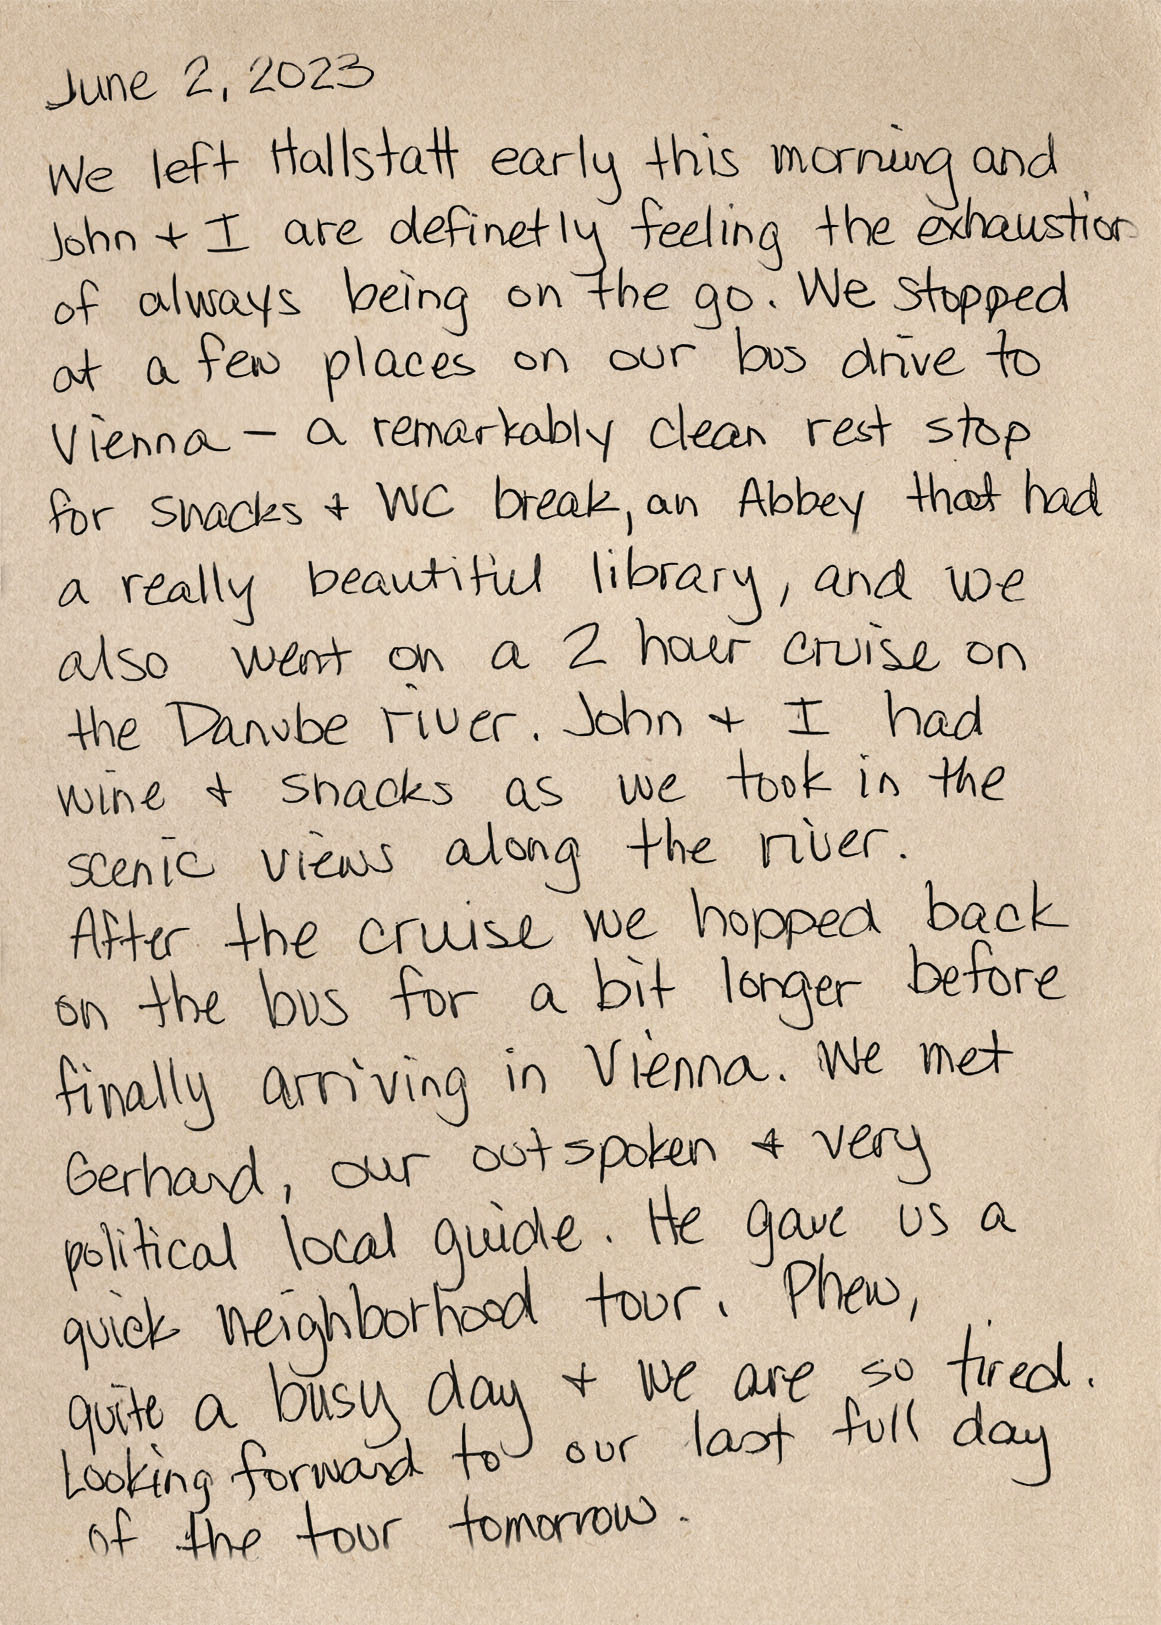 June 2, 2023
We left Hallstatt early this morning and
John + I are definetly feeling the exhaustion
of always being on the go. We stopped
at a few places on our bus drive to
Vienna – a remarkably clean rest stop
for snacks + WC break, an Abbey that had
a really beautiful library, and we
also went on a 2 hour cruise on
the Danube river. John + I had
wine + snacks as we took in the
scenic views along the river.
After the cruise we hopped back
on the bus for a bit longer before
finally arriving in Vienna. We met
Gerhard, our outspoken + very
political local guide. He gave us a
quick neighborhood tour. Phew,
quite a busy day + we are so tired.
Looking forward to our last full day
of the tour tomorrow.